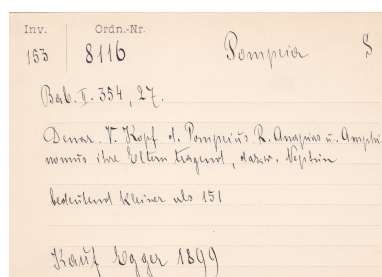 Inv. Ordn.-Nr.
153 8116 Pompeia S
Bab. II. 354, 27.
Denar. V. Kopf d. Pompeius. R. Anapias u. Amphi
nomus ihre Eltern tragend, dazw. Neptun
bedeutend kleiner als 151
Kauf Egger 1899